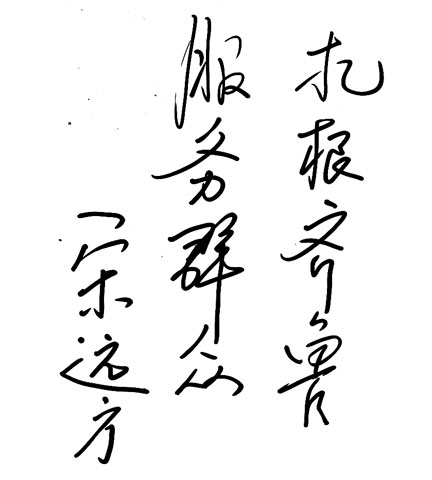 扎根齐鲁
服务群众
宋远方